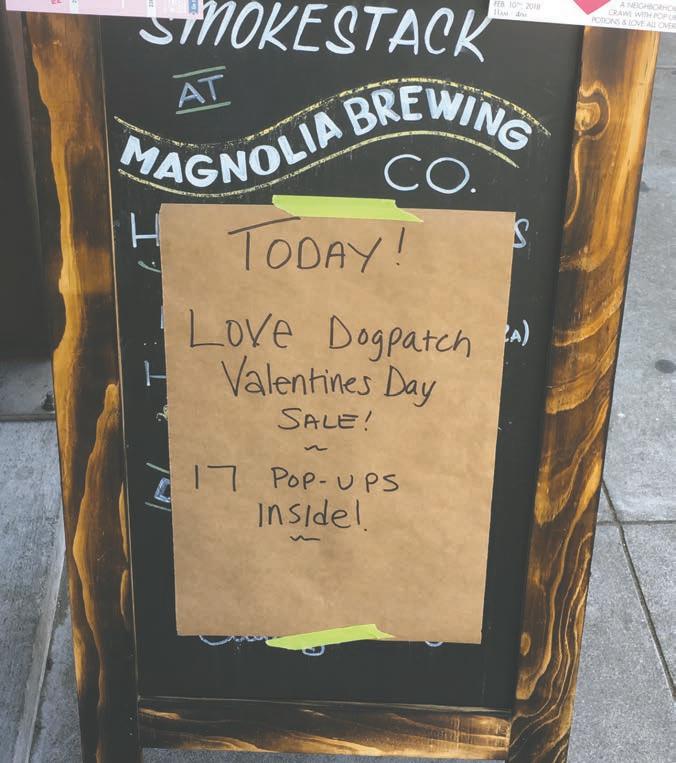 FEB. 10TH, 2018
11AM - 4PM
A NEIGHBORHO
CRAWL WITH POP UP
POTIONS & LOVE ALL OVER
SMOKESTACK
AT
MAGNOLIA BREWING
CO.
TODAY!
LOVE Dogpatch
Valentines Day
SALE!
17 POP-UPS
INSIde!